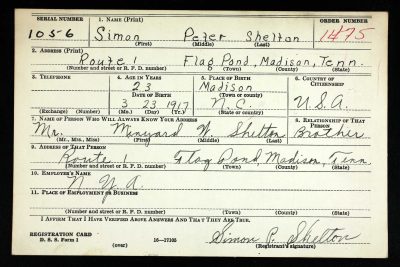 SERIAL NUMBER 1. NAME (Print) ORDER NUMBER
1056 Simon Peter Shelton 1475
(First) (Middle) (Last)
2. ADDRESS (Print)
Route 1 Flag Pond, Madison, Tenn.
(Number and street or R. F. D. number) (Town) (County) (State)
3. TELEPHONE 4. AGE IN YEARS 5. PLACE OF BIRTH 6. COUNTRY OF CITIZENSHIP
23 Madison
DATE OF BIRTH (Town or county)
3 23 1917 N.C. U.S.A.
(Exchange) (Number) (Mo.) (Day) (Yr.) (State or country)
7. NAME OF PERSON WHO WILL ALWAYS KNOW YOUR ADDRESS 8. RELATIONSHIP OF THAT PERSON
Mr. W. Shelton Brother
(Mr., Mrs., Miss) (First) (Middle) (Last)
9. ADDRESS OF THAT PERSON
Route Flag Pond, Madison, Tenn.
(Number and street or R. F. D. number) (Town) (County) (State)
10. EMPLOYER'S NAME
N.Y.A.
11. PLACE OF EMPLOYMENT OR BUSINESS
(Number and street or R. F. D. number) (Town) (County) (State)
I AFFIRM THAT I HAVE VERIFIED ABOVE ANSWERS AND THAT THEY ARE TRUE.
REGISTRATION CARD Simon P. Shelton
D. S. S. Form 1 (over) (Registrant's signature)